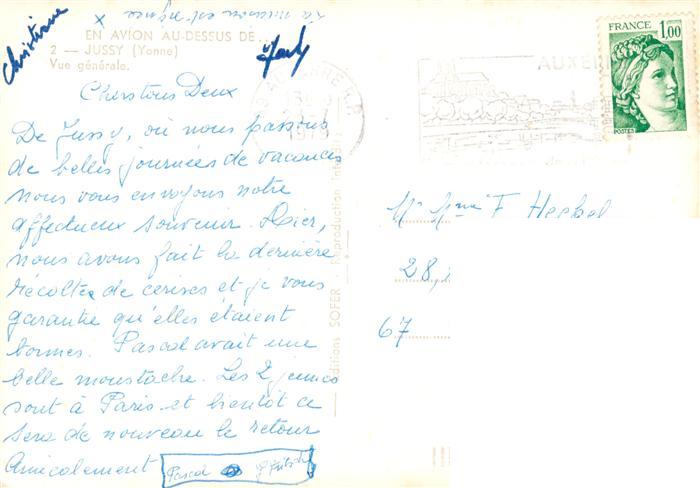 La maison est
Christiane
EN AVION AU-DESSUS DE...
2 — JUSSY (Yonne)
Vue générale.
Chers tous Deux
De Jussy, où nous passons
de belles journées de vacances
nous vous envoyons notre
affectueux souvenir. Hier,
nous avons fait la dernière
récolte de cerises et je vous
garantie qu'elles étaient
bonnes. Pascal avait une
belle moustache. Les 2 jeunes
sont à Paris et bientôt ce
sera de nouveau le retour
Amicalement
Pascal
Editions SOFER
Reproduction
AUXERRE R.P.
1979
FRANCE 1,00
POSTES
Mr Mme F Heckel
28,
67